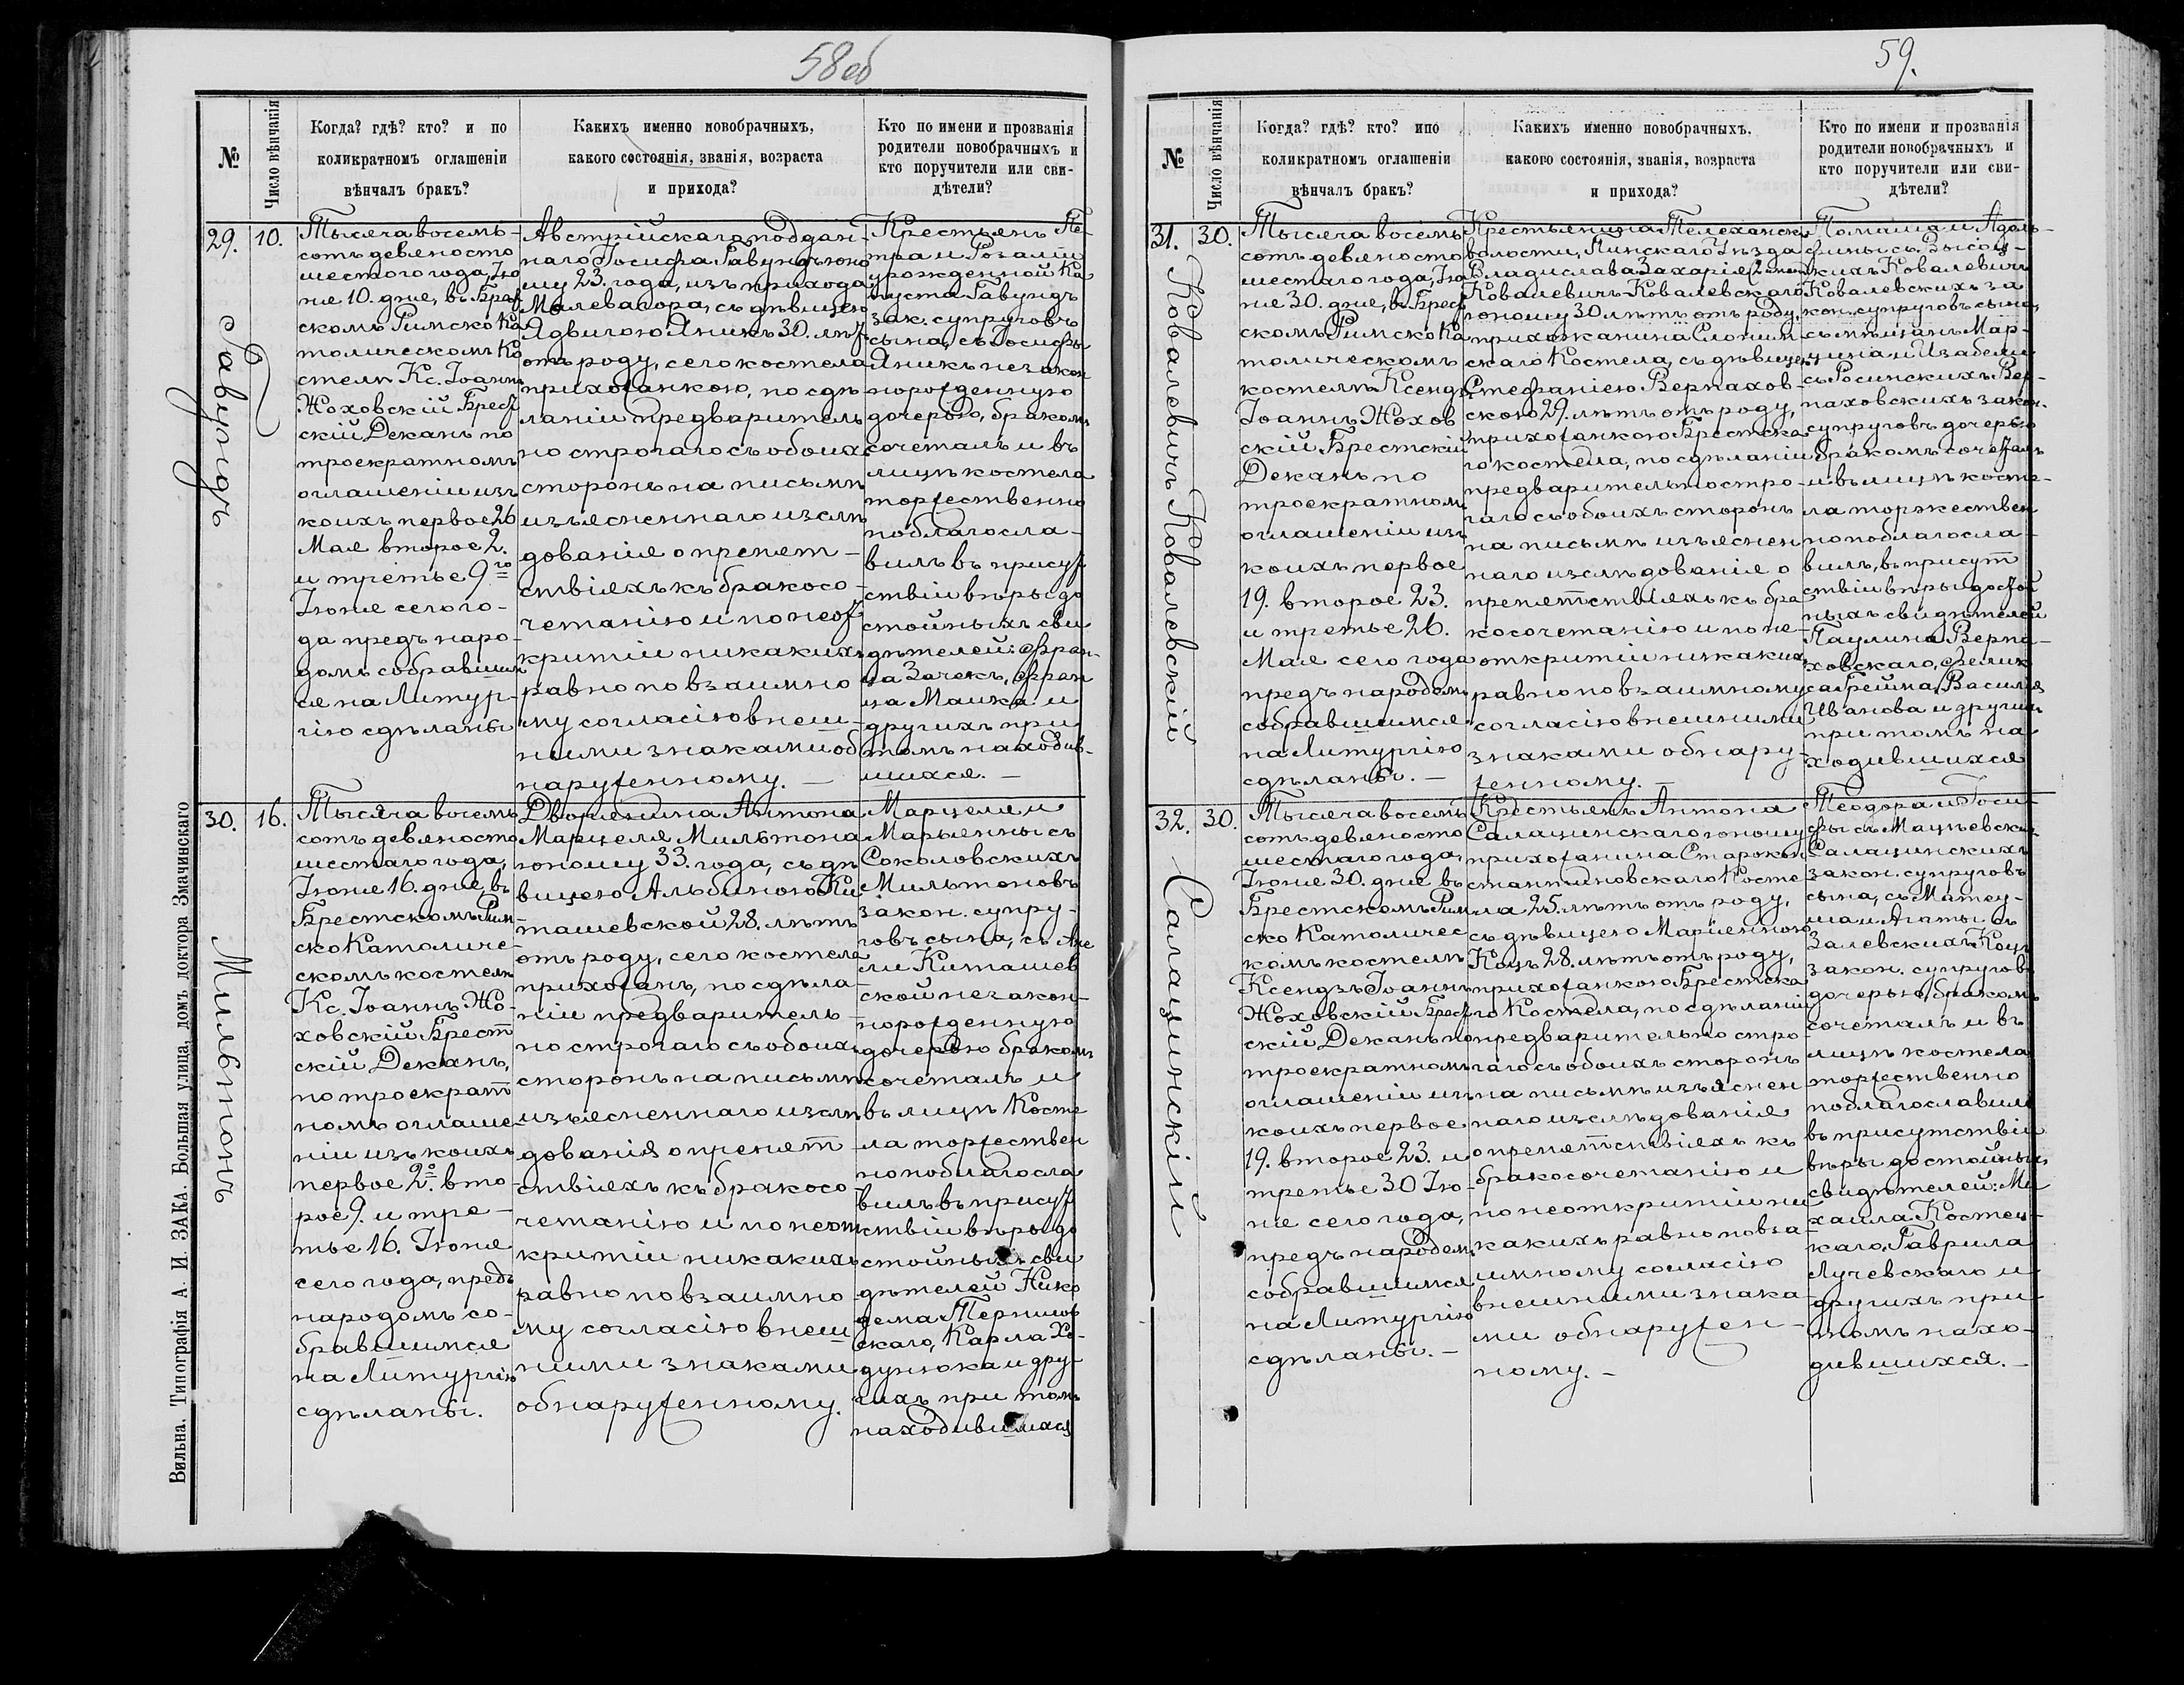 58об
№
Число вѣнчанія
Когда? гдѣ? кто? и по
коликратномъ оглашеніи
вѣнчалъ бракъ?
Какихъ именно новобрачныхъ,
какого состоянія, званія, возраста
и прихода?
Кто по имени и прозванія
родители новобрачныхъ и
кто поручители или сви-
дѣтели?
29.
Гавундъ
10.
Тысяча восемь-
сотъ девяносто
шестого года, Ію
ня 10. дня, въ Брест
скомъ Римско Ка
толическомъ Ко
стелѣ Кс. Іоаннъ
Жоховскій Брест
скій Деканъ по
троекратномъ
оглашеніи изъ
коихъ первое 26
Мая второе 2.
и третье 9го
Іюня сего го-
да предъ наро-
домъ собравшим
ся на Литур-
гію сдѣланы
Австрійскаго поддан-
наго Іосифа Гавундъ юно
шу 23. года, изъ прихода
съ дѣвицею
Ядвигою Яникъ 30. лѣт
отъ роду, сего костела
прихожанкою, по сдѣ
ланіи предваритель
но строгаго съ обоихъ
сторонъ на письмѣ
изъясненнаго изслѣ
дованія о препят-
ствіяхъ къ бракосо-
четанію и по неот
крытіи никакихъ
равно по взаимно
му согласію внеш-
ними знаками об
наруженному. —
Крестьянъ Пе-
тра и Розаліи
урожденной Ка
пуста Гавундъ
зак. супруговъ
сына, съ Іосифы
Яникъ незакон
норожденную
дочерью, бракомъ
сочеталъ и въ
лицѣ костела
торжественно
поблагосла-
вилъ въ присут
ствіи вѣры до
стойныхъ сви
дѣтелей: Фран-
ца Зачекъ, Фран
ца Машка и
другихъ при
томъ находив-
шихся. —
30.
Мильтонъ
16.
Тысяча восемь
сотъ девяносто
шестаго года,
Іюня 16. дня, въ
Брестскомъ Рим
ско Католиче-
скомъ костелѣ
Кс. Іоаннъ Жо-
ховскій Брест
скій Деканъ,
по троекрат
номъ оглаше-
ніи изъ коихъ
первое 2о. вто-
рое 9. и тре-
тье 16. Іюня
сего года, предъ
народомъ со-
бравшимся
на Литургію
сдѣланы.
Дворянина Антона
Марцеля Мильтона
юношу 33. года, съ дѣ
вицею Альбиною Ки-
ташевской 28. лѣтъ
отъ роду, сего костела
прихожанъ, по сдѣла-
ніи предваритель
но строгаго съ обоихъ
сторонъ на письмѣ
изъясненнаго изслѣ
дованія о препят
ствіяхъ къ бракосо
четанію и по неот
крытіи никакихъ
равно по взаимно
му согласію внеш
ними знаками
обнаруженному.
Марцеля и
Марьянны съ
Соколовскихъ
Мильтоновъ
закон. супру-
говъ сына, съ Ане
ли Киташев
ской незакон-
норожденную
дочерью бракомъ
сочеталъ и
въ лицѣ Косте
ла торжествен
но поблагосла
вилъ въ присут
ствіи вѣры до
стойныхъ сви
дѣтелей Нико
дема
скаго, Карла Хо-
дунюка и дру-
гихъ при томъ
находившихся
Вильна. Типографія А. И. ЗАКА. Большая улица, домъ доктора Змачинскаго
59.
№
Число вѣнчанія
Когда? гдѣ? кто? ипо
коликратномъ оглашеніи
вѣнчалъ бракъ?
Какихъ именно новобрачныхъ,
какого состоянія, званія, возраста
и прихода?
Кто по имени и прозванія
родители новобрачныхъ и
кто поручители или сви-
дѣтели?
31.
Ковалевичъ Ковалевскій
30.
Тысяча восемь
сотъ девяносто
шестаго года, Ію
ня 30. дня, въ Брест
скомъ Римско Ка
толическомъ
костелѣ Ксендзъ
Іоаннъ Жохов
скій Брестскій
Деканъ по
троекратномъ
оглашеніи изъ
коихъ первое
19. второе 23.
и третье 26.
Мая сего года
предъ народомъ
собравшимся
на Литургію
сдѣланы. —
Крестьянина Телеханск.
волости, Пинскаго Уѣзда
Владислава Захарія
Ковалевичъ Ковалевскаго
юношу 30 лѣтъ отъ роду,
прихожанина Слоним
скаго Костела, съ дѣвицею
Стефаніею Верпахов-
скою 29. лѣтъ отъ роду,
прихожанкою Брестска
го костела, по сдѣланіи
предварительно стро-
гаго съ обоихъ сторонъ
на письмѣ изъяснен
наго изслѣдованія о
препятствіяхъ къ бра
косочетанію и по не-
открытіи никакихъ
равно по взаимному
согласію внешними
знаками обнару-
женному. —
Томаша и Адоль-
фины съ Высоц-
кихъ Ковалевичъ
Ковалевскихъ за
кон. супруговъ сына,
съ мѣщанъ Мар-
цина и Изабели
съ Росинскихъ Вер-
паховскихъ закон.
супруговъ дочерью
бракомъ сочеталъ
и въ лицѣ косте-
ла торжествен
но поблагосла-
вилъ, въ присут
ствіи вѣры достой
ныхъ свидѣтелей
Паулина Верпа-
ховскаго, Фелик
са Грейма, Василія
Иванова и другихъ
при томъ на
ходившихся
32.
Салацинскій
30.
Тысяча восемь
сотъ девяносто
шестаго года,
Іюня 30. дня въ
Брестскомъ Рим
ско Католичес
комъ костелѣ
Ксендзъ Іоаннъ
Жоховскій Брест
скій Деканъ по
троекратномъ
оглашеніи изъ
коихъ первое
19. второе 23. и
третье 30 Ію-
ня сего года,
предъ народомъ
собравшимся
на Литургію
сдѣланы. —
Крестьянъ Антона
Салацинскаго юношу
прихожанина Старокон
стантиновскаго Косте
ла 25. лѣтъ отъ роду,
съ дѣвицею Маріенною
Коцъ 28. лѣтъ отъ роду,
прихожанкою Брестска
го Костела, по сдѣланіи
предварительно стро-
гаго съ обоихъ сторонъ
на письмѣ изъяснен
наго изслѣдованія
о препятствіяхъ къ
бракосочетанію и
по неоткрытіи ни
какихъ равно по вза-
имному согласію
внешними знака-
ми обнаружен-
ному. —
Теодора и Іоси-
фы съ Мацѣевских
Салацинскихъ
закон. супруговъ
сына, съ Матеу-
ша и Агаты съ
Залевскихъ Коцъ
закон. супруговъ
дочерью, бракомъ
сочеталъ и въ
лицѣ костела
торжественно
поблагославилъ
въ присутствіи
вѣры достойныхъ
свидѣтелей: Ми
хаила Костец-
каго, Гаврила
Лучевскаго и
другихъ при
томъ нахо-
дившихся. —